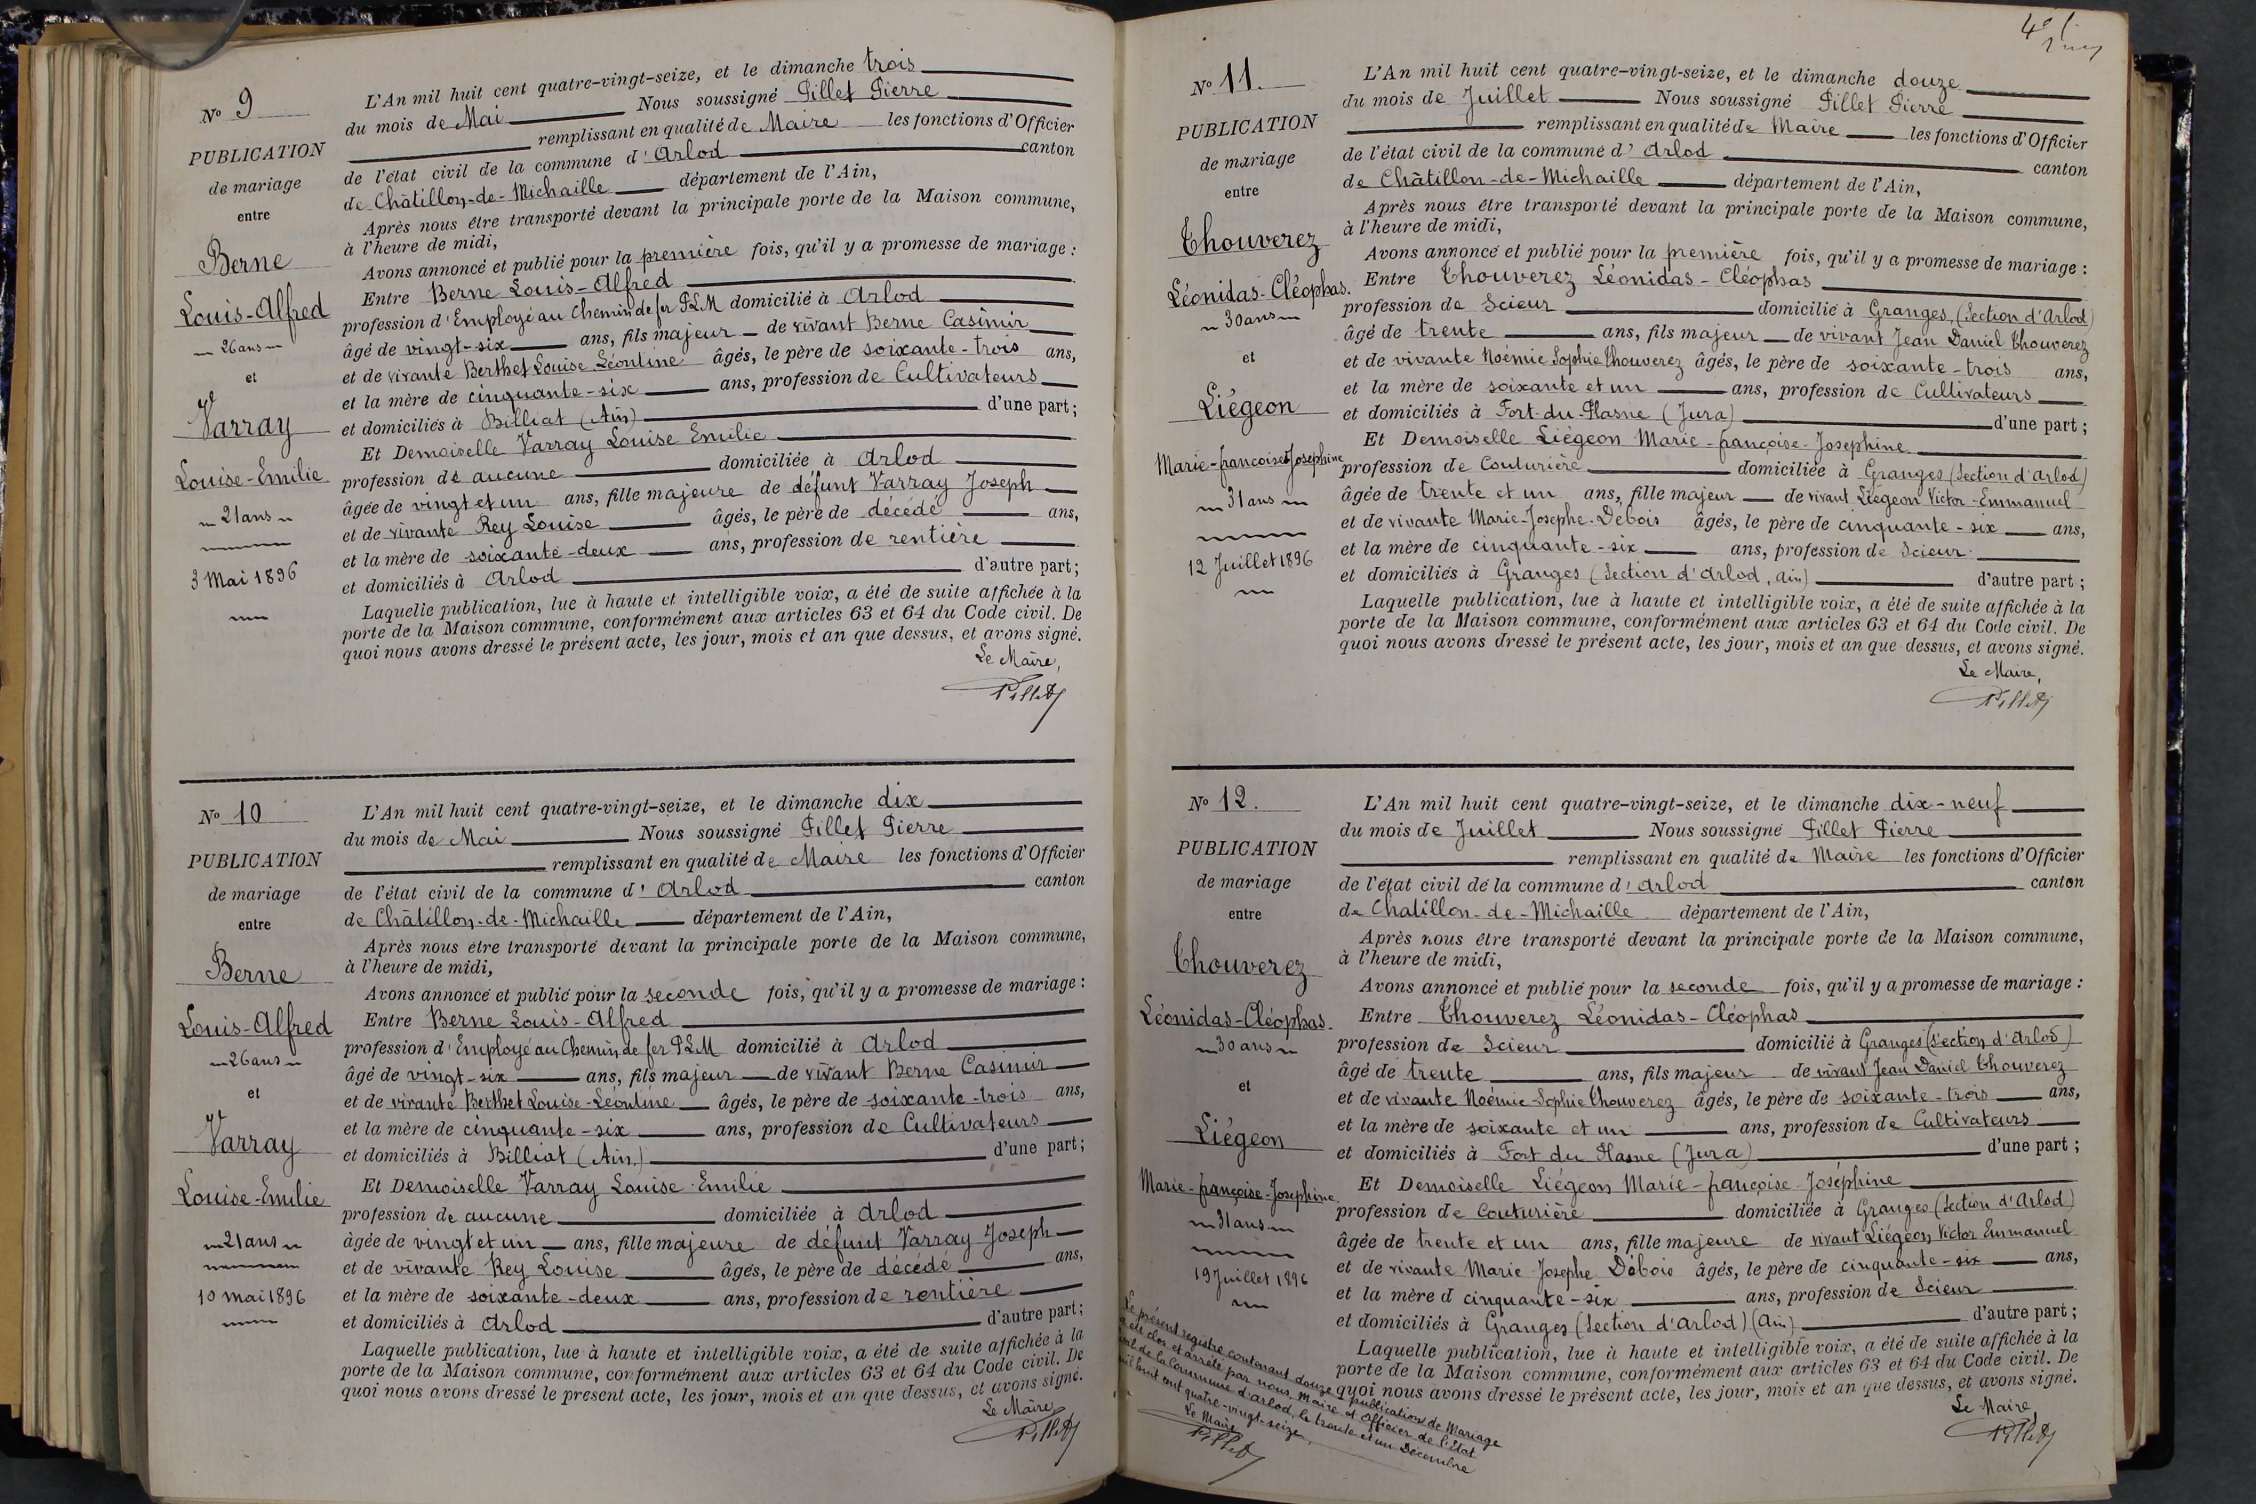 No 9
PUBLICATION
de mariage
entre
Berne
Louis-Alfred
26 ans
et
Varray
Louise-Emilie
21 ans
3 Mai 1896
L'An mil huit cent quatre-vingt-seize, et le dimanche trois
du mois de Mai Nous soussigné Pillet Pierre
remplissant en qualité de Maire les fonctions d'Officier
de l'état civil de la commune d'Arlod canton
de Châtillon-de-Michaille département de l'Ain,
Après nous être transporté devant la principale porte de la Maison commune,
à l'heure de midi,
Avons annoncé et publié pour la première fois, qu'il y a promesse de mariage :
Entre Berne Louis-Alfred
profession d'Employé au Chemin de fer PLM domicilié à Arlod
âgé de vingt-six ans, fils majeur de vivant Berne Casimir
et de vivante Berthet Louise Léontine âgés, le père de soixante-trois ans,
et la mère de cinquante-six ans, profession de Cultivateurs
et domiciliés à Billiat (Ain) d'une part ;
Et Demoiselle Varray Louise Emilie
profession de aucune domiciliée à Arlod
âgée de vingt et un ans, fille majeure de défunt Varray Joseph
et de vivante Rey Louise âgés, le père de décédé ans,
et la mère de soixante-deux ans, profession de rentière
et domiciliés à Arlod d'autre part ;
Laquelle publication, lue à haute et intelligible voix, a été de suite affichée à la
porte de la Maison commune, conformément aux articles 63 et 64 du Code civil. De
quoi nous avons dressé le présent acte, les jour, mois et an que dessus, et avons signé.
Le Maire,
Pillet
No 10
PUBLICATION
de mariage
entre
Berne
Louis-Alfred
26 ans
et
Varray
Louise-Emilie
21 ans
10 mai 1896
L'An mil huit cent quatre-vingt-seize, et le dimanche dix
du mois de Mai Nous soussigné Pillet Pierre
remplissant en qualité de Maire les fonctions d'Officier
de l'état civil de la commune d'Arlod canton
de Châtillon-de-Michaille département de l'Ain,
Après nous être transporté devant la principale porte de la Maison commune,
à l'heure de midi,
Avons annoncé et publié pour la seconde fois, qu'il y a promesse de mariage :
Entre Berne Louis-Alfred
profession d'Employé au Chemin de fer PLM domicilié à Arlod
âgé de vingt-six ans, fils majeur de vivant Berne Casimir
et de vivante Berthet Louise-Léontine âgés, le père de soixante-trois ans,
et la mère de cinquante-six ans, profession de Cultivateurs
et domiciliés à Billiat (Ain.) d'une part ;
Et Demoiselle Varray Louise-Emilie
profession de aucune domiciliée à Arlod
âgée de vingt et un ans, fille majeure de défunt Varray Joseph
et de vivante Rey Louise âgés, le père de décédé ans,
et la mère de soixante-deux ans, profession de rentière
et domiciliés à Arlod d'autre part ;
Laquelle publication, lue à haute et intelligible voix, a été de suite affichée à la
porte de la Maison commune, conformément aux articles 63 et 64 du Code civil. De
quoi nous avons dressé le présent acte, les jour, mois et an que dessus, et avons signé.
Le Maire
Pillet
No 11.
PUBLICATION
de mariage
entre
Thouverez
Léonidas-Cléophas.
30 ans
et
Liégeon
Marie-françoise-Josephine
31 ans
12 Juillet 1896
L'An mil huit cent quatre-vingt-seize, et le dimanche douze
du mois de Juillet Nous soussigné Pillet Pierre
remplissant en qualité de Maire les fonctions d'Officier
de l'état civil de la commune d'Arlod canton
de Châtillon-de-Michaille département de l'Ain,
Après nous être transporté devant la principale porte de la Maison commune,
à l'heure de midi,
Avons annoncé et publié pour la première fois, qu'il y a promesse de mariage :
Entre Thouverez Léonidas-Cléophas
profession de Scieur domicilié à Granges, (Section d'Arlod)
âgé de trente ans, fils majeur de vivant Jean Daniel Thouverez
et de vivante Noémie Sophie Thouverez âgés, le père de soixante-trois ans,
et la mère de soixante et un ans, profession de Cultivateurs
et domiciliés à Fort-du-Plasne (Jura) d'une part ;
Et Demoiselle Liégeon Marie-françoise-Josephine
profession de Couturière domiciliée à Granges (Section d'Arlod)
âgée de trente et un ans, fille majeur de vivant Liégeon Victor-Emmanuel
et de vivante Marie-Josephe-Débois âgés, le père de cinquante-six ans,
et la mère de cinquante-six ans, profession de Scieur
et domiciliés à Granges (Section d'Arlod, Ain) d'autre part ;
Laquelle publication, lue à haute et intelligible voix, a été de suite affichée à la
porte de la Maison commune, conformément aux articles 63 et 64 du Code civil. De
quoi nous avons dressé le présent acte, les jour, mois et an que dessus, et avons signé.
Le Maire,
Pillet
No 12.
PUBLICATION
de mariage
entre
Thouverez
Léonidas-Cléophas.
30 ans
et
Liégeon
Marie-françoise-Josephine
31 ans
19 Juillet 1896
L'An mil huit cent quatre-vingt-seize, et le dimanche dix-neuf
du mois de Juillet Nous soussigné Pillet Pierre
remplissant en qualité de Maire les fonctions d'Officier
de l'état civil de la commune d'Arlod canton
de Chatillon-de-Michaille département de l'Ain,
Après nous être transporté devant la principale porte de la Maison commune,
à l'heure de midi,
Avons annoncé et publié pour la seconde fois, qu'il y a promesse de mariage :
Entre Thouverez Léonidas-Cléophas
profession de Scieur domicilié à Granges (Section d'Arlod)
âgé de trente ans, fils majeur de vivant Jean Daniel Thouverez
et de vivante Noémie-Sophie Thouverez âgés, le père de soixante-trois ans,
et la mère de soixante et un ans, profession de Cultivateurs
et domiciliés à Fort du Plasne (Jura) d'une part ;
Et Demoiselle Liégeon Marie-françoise-Joséphine
profession de Couturière domiciliée à Granges (Section d'Arlod)
âgée de trente et un ans, fille majeure de vivant Liégeon Victor Emmanuel
et de vivante Marie Josephe Débois âgés, le père de cinquante-six ans,
et la mère d cinquante-six ans, profession de Scieur
et domiciliés à Granges (Section d'Arlod) (Ain) d'autre part ;
Laquelle publication, lue à haute et intelligible voix, a été de suite affichée à la
porte de la Maison commune, conformément aux articles 63 et 64 du Code civil. De
quoi nous avons dressé le présent acte, les jour, mois et an que dessus, et avons signé.
Le Maire,
Pillet
Le présent registre contenant douze publications de Mariage
a été clos et arrêté par nous, Maire et officier de l'état
civil de la Commune d'Arlod, le trente et un Décembre
mil huit cent quatre-vingt-seize.
Le Maire
Pillet